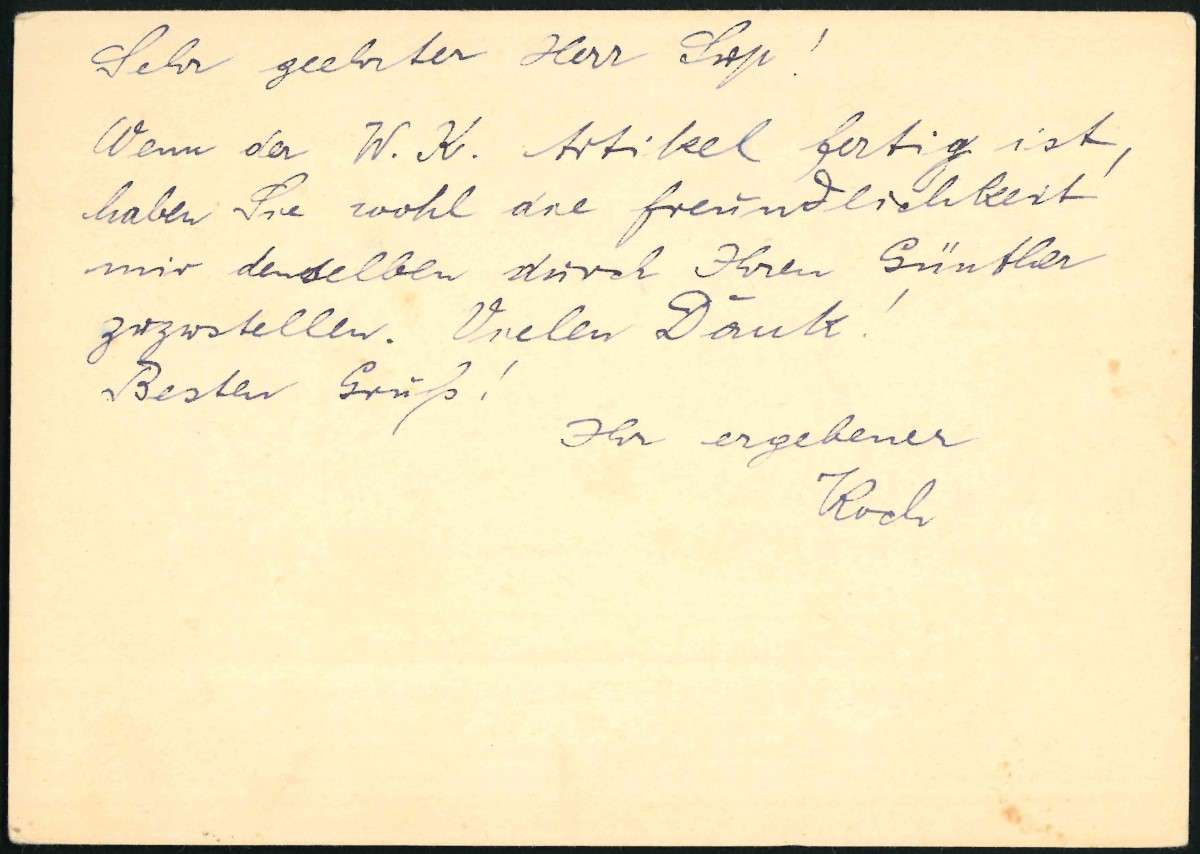 Sehr geehrter Herr
Wenn der W. K. Artikel fertig ist,
haben Sie wohl die Freundlichkeit
mir denselben durch Ihren Günther
zuzustellen. Vielen Dank!
Besten Gruß!
Ihr ergebener
Koch